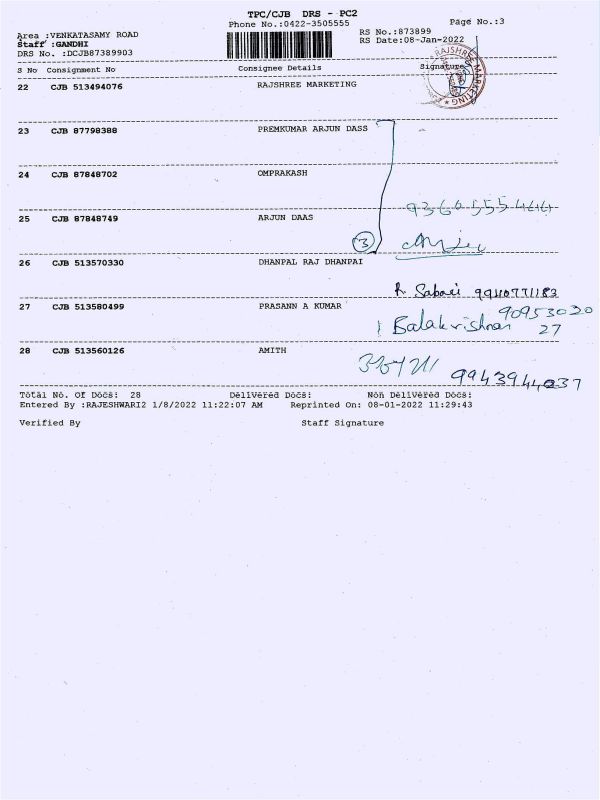 TPC/CJB DRS - PC2
Phone No.:0422-3505555
Page No.:3
Area :VENKATASAMY ROAD
RS No.:873899
Staff :GANDHI
RS Date:08-Jan-2022
DRS No. :DCJB87389903
S No Consignment No Consignee Details Signature
RAJSHREE MARKETING
22 CJB 513494076 RAJSHREE MARKETING
23 CJB 87798388 PREMKUMAR ARJUN DASS
24 CJB 87848702 OMPRAKASH
9360555444
25 CJB 87848749 ARJUN DAAS
3
26 CJB 513570330 DHANPAL RAJ DHANPAI
R Sabari 9940771183
27 CJB 513580499 PRASANN A KUMAR
Balakrishnan 90953020
27
28 CJB 513560126 AMITH
9943944037
Total No. Of Docs: 28 Delivered Docs: Non Delivered Docs:
Entered By :RAJESHWARI2 1/8/2022 11:22:07 AM Reprinted On: 08-01-2022 11:29:43
Verified By Staff Signature